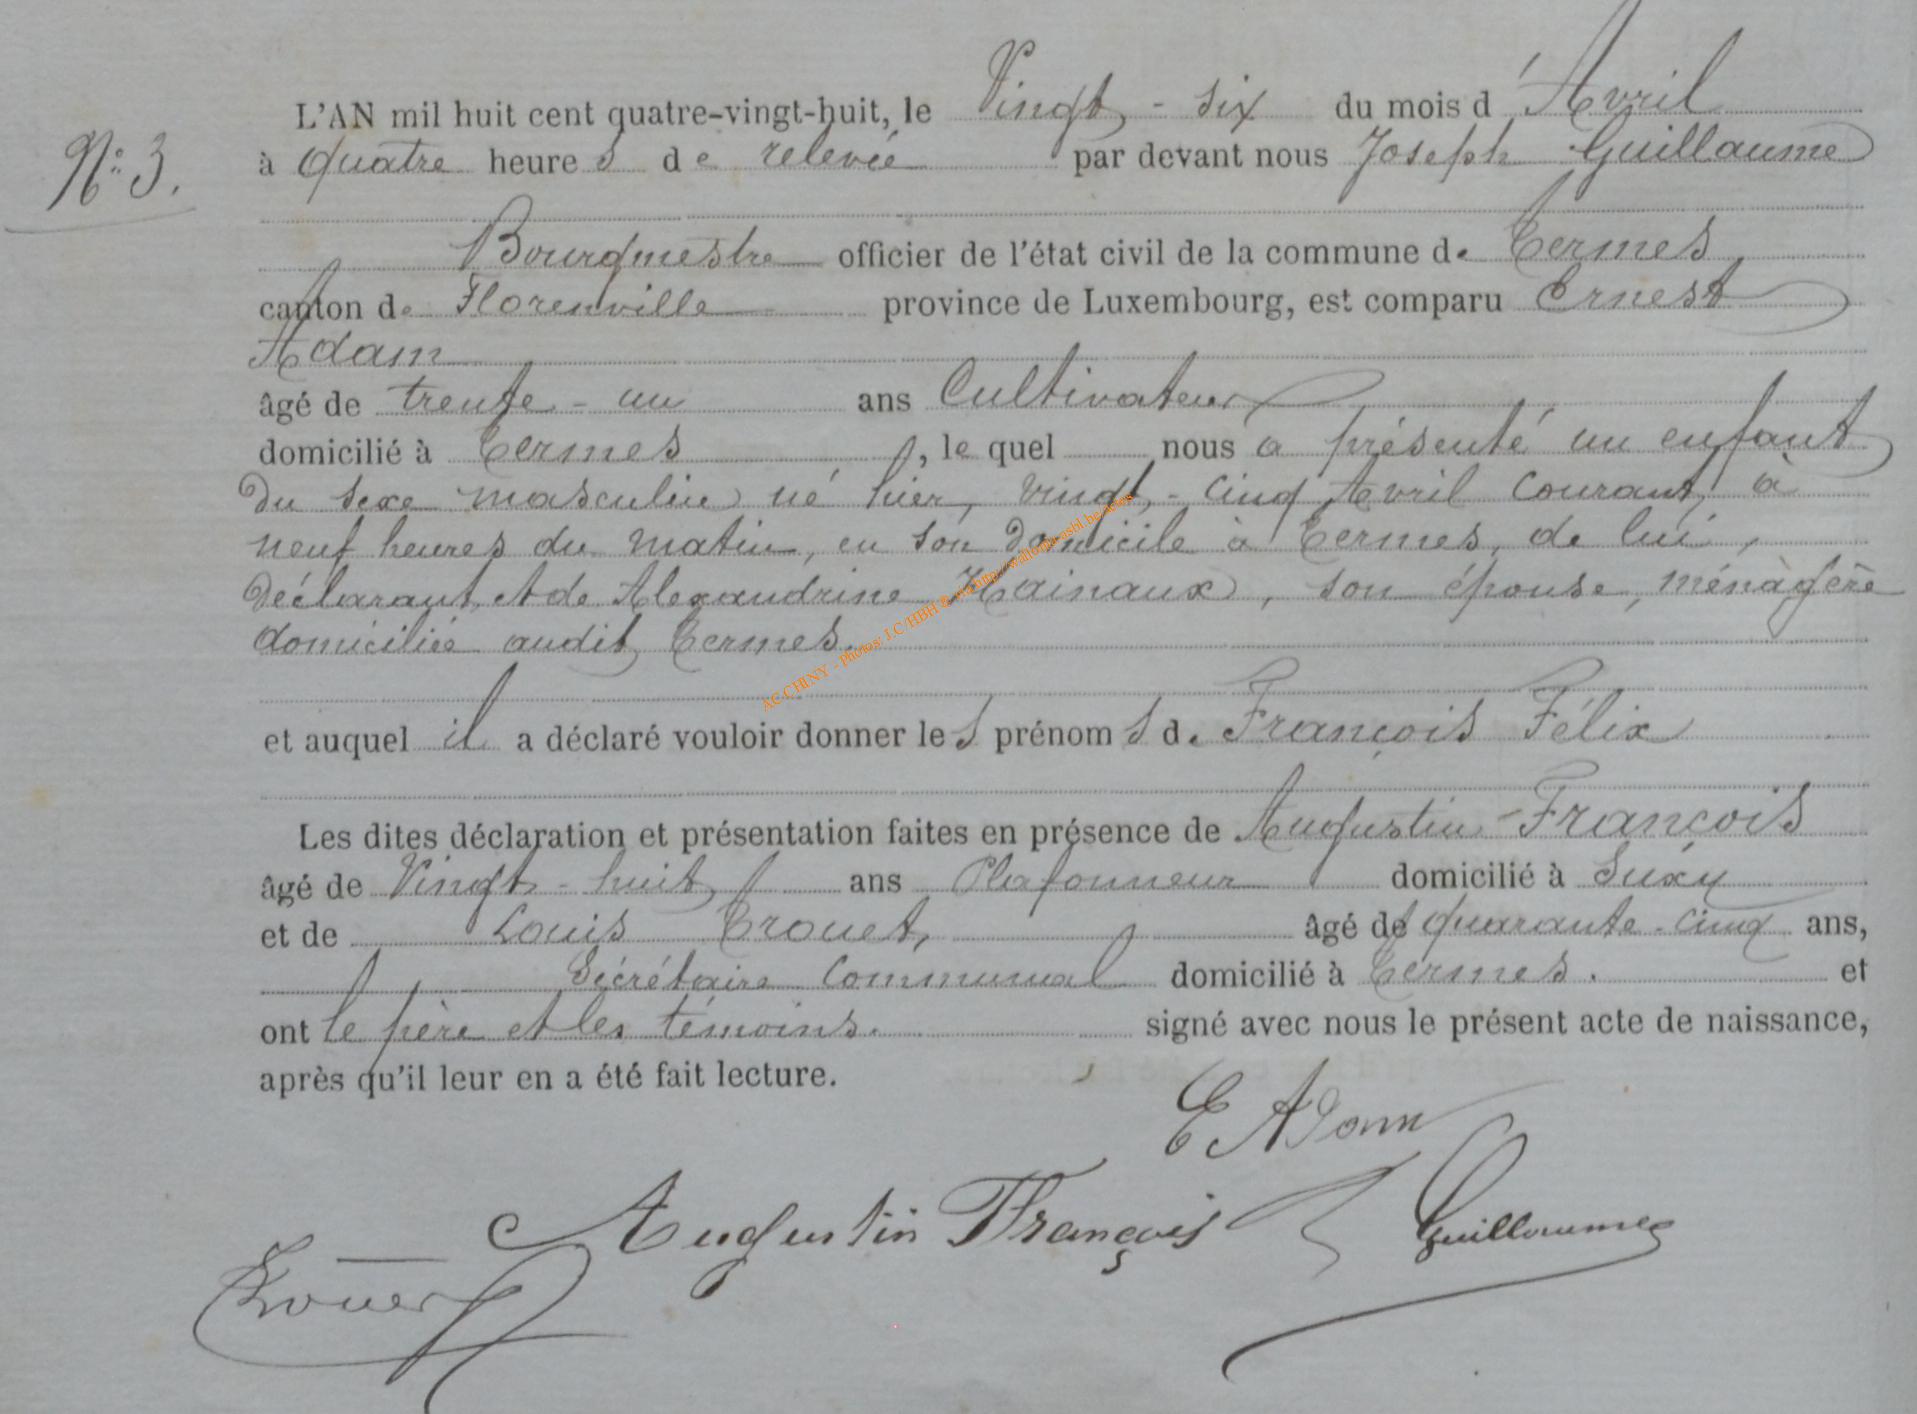 L'AN mil huit cent quatre-vingt-huit, le Vingt-six du mois d'Avril
N° 3.
à quatre heures de relevée par devant nous Joseph Guillaume
Bourgmestre officier de l'état civil de la commune de Termes
canton de Florenville province de Luxembourg, est comparu Ernest
Adam
âgé de trente-un ans Cultivateur
domicilié à Termes, le quel nous a présenté un enfant
du sexe masculin né hier, vingt-cinq Avril courant, à
neuf heures du matin, en son domicile à Termes, de lui,
déclarant, et de Alexandrine Hainaux, son épouse, ménàgère
domiciliée audit Termes.
AC CHINY - Photos: J.C/HBH
et auquel il a déclaré vouloir donner les prénoms de François Félix
Les dites déclaration et présentation faites en présence de Augustin François
âgé de Vingt-huit ans Plafonneur domicilié à Suxy
et de Louis Trouet, âgé de quarante-cinq ans,
Sécrétaire Communal domicilié à Termes. et
ont le père et les témoins. signé avec nous le présent acte de naissance,
après qu'il leur en a été fait lecture.
E Adam
Augustin François Guillaume
Trouet